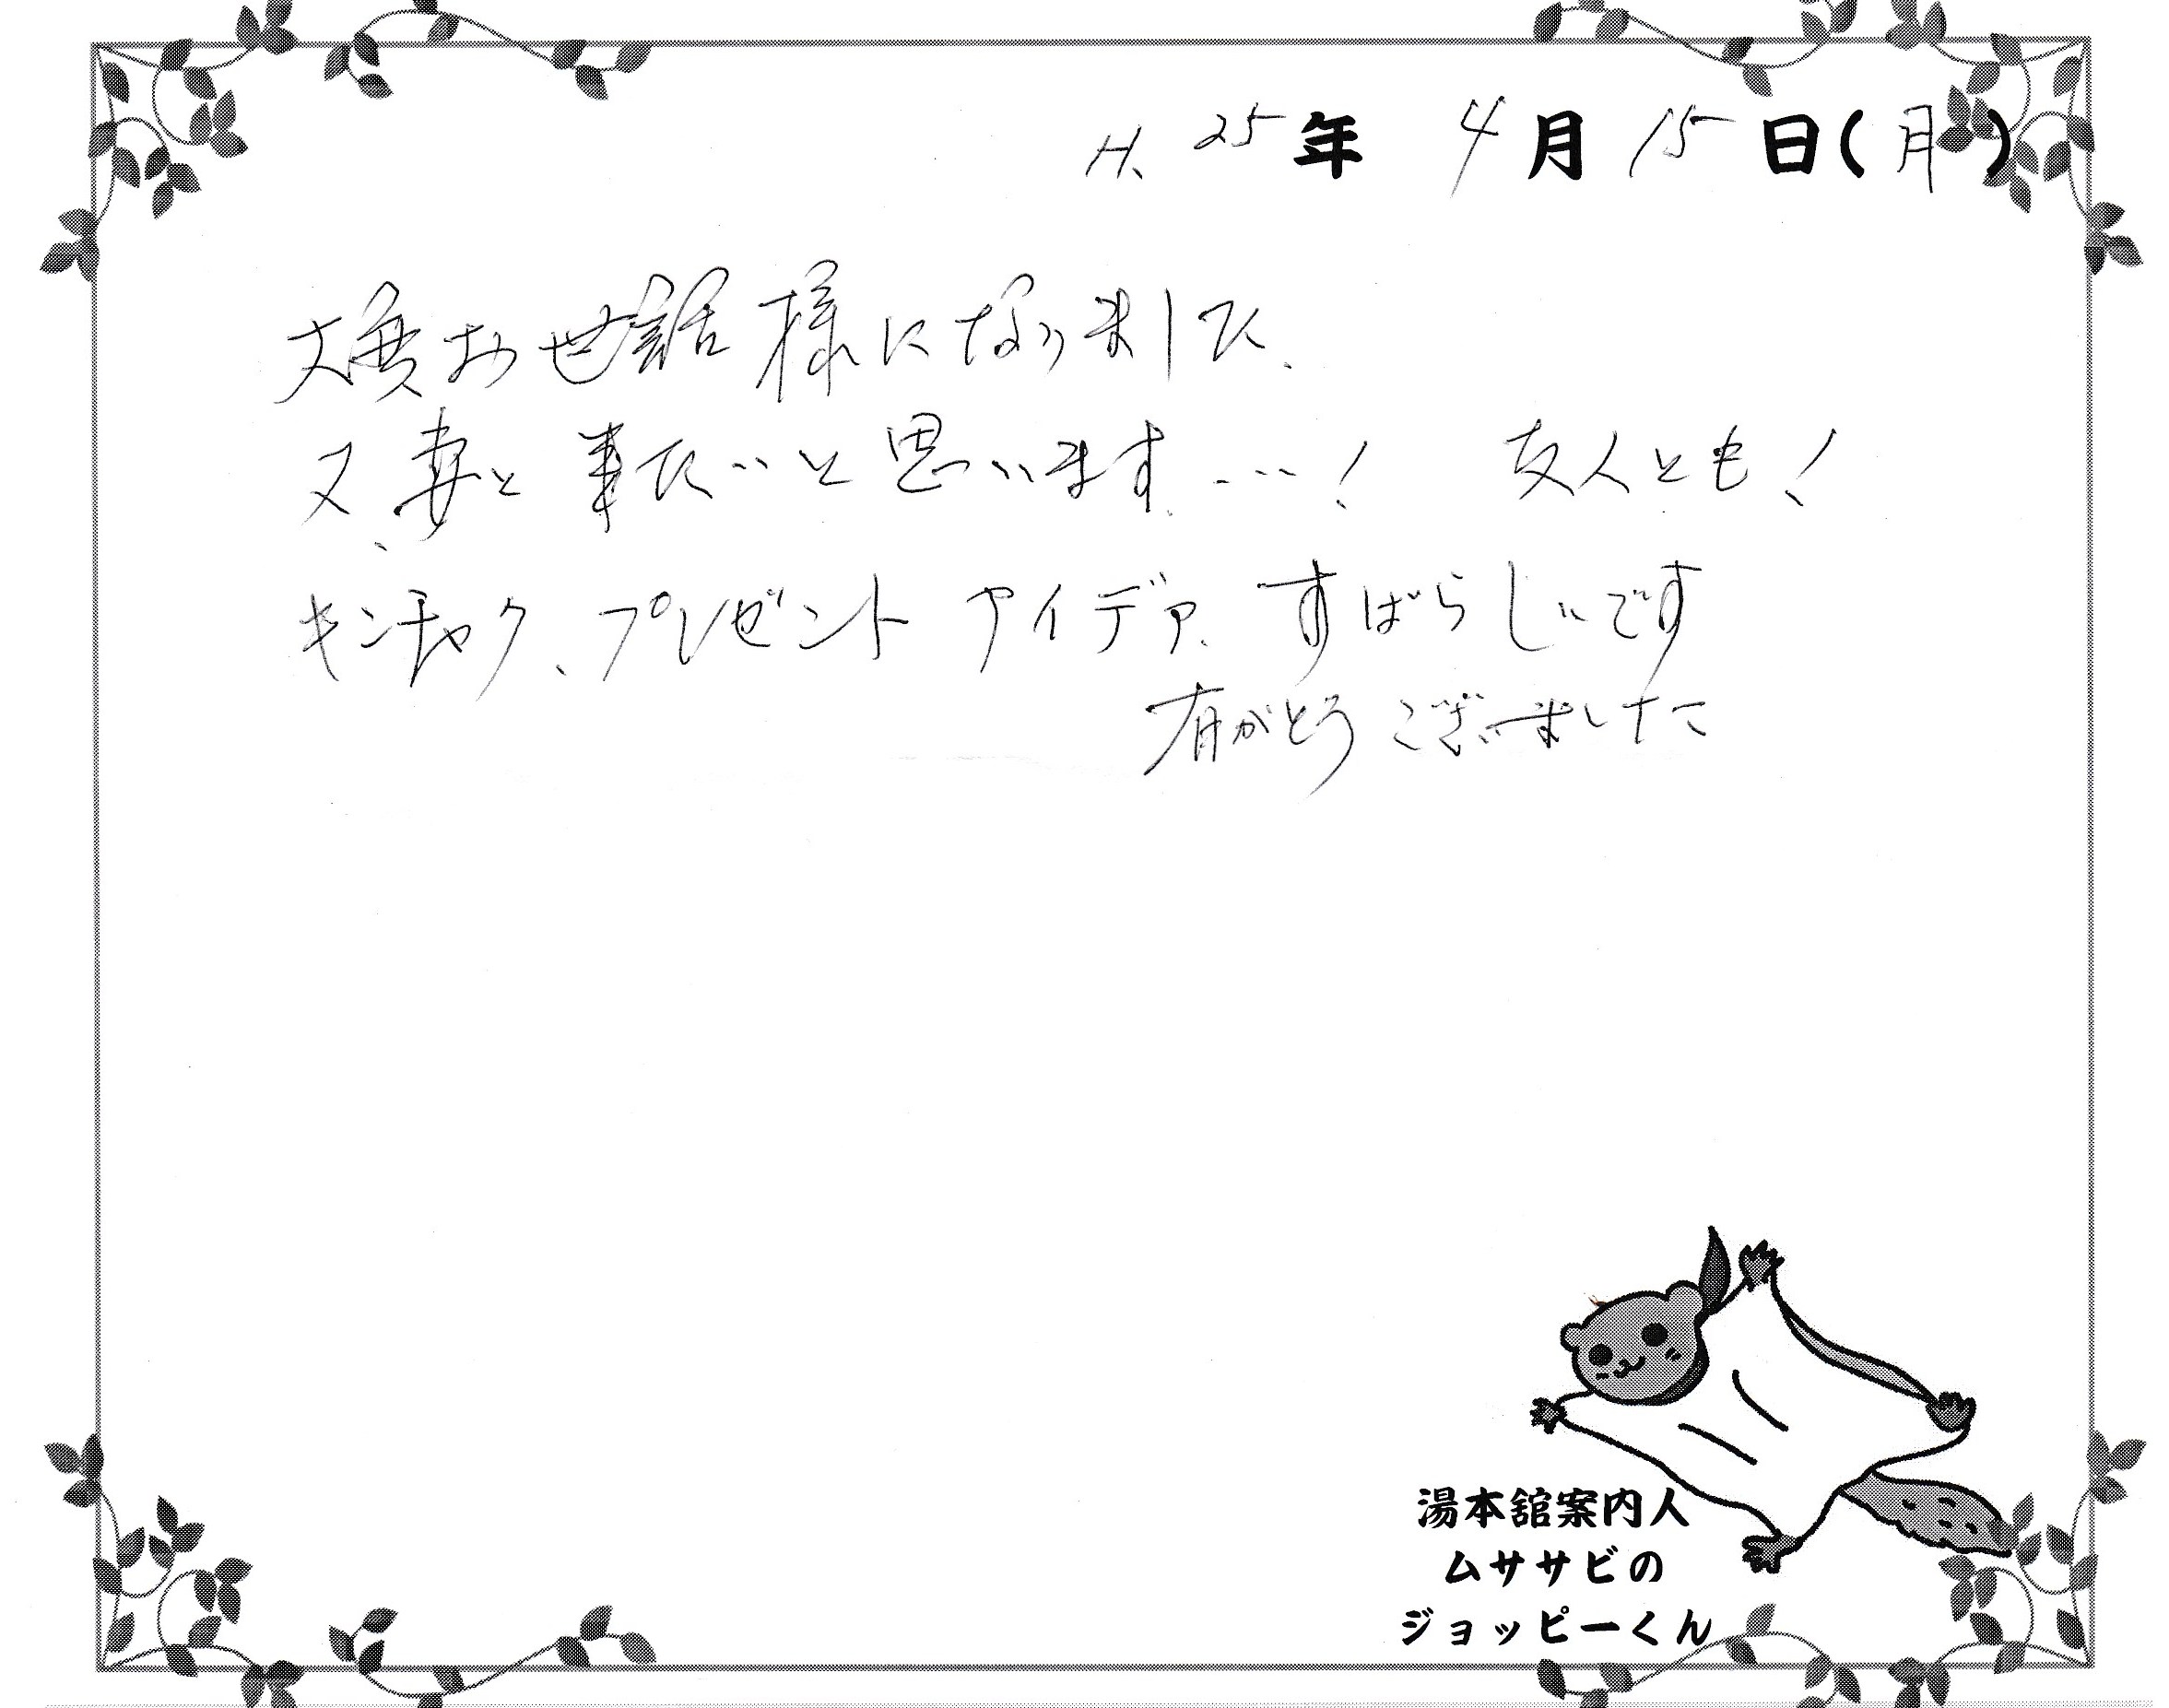 H. 25年 4月 15日(月)
大変お世話様になりました.
又、妻と来たいと思います…! 友人とも!
キンチャク、プレゼント アイデア、すばらしいです
有がとうございました
湯本舘案内人
ムササビの
ジョッピーくん